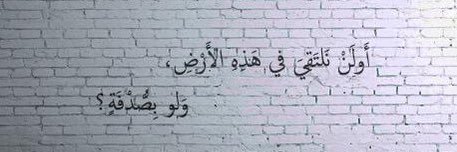 أَولَنْ نَلتَقيَ في هَذِهِ الأَرْضِ،
وَلو بِصُّدْفَةٍ؟